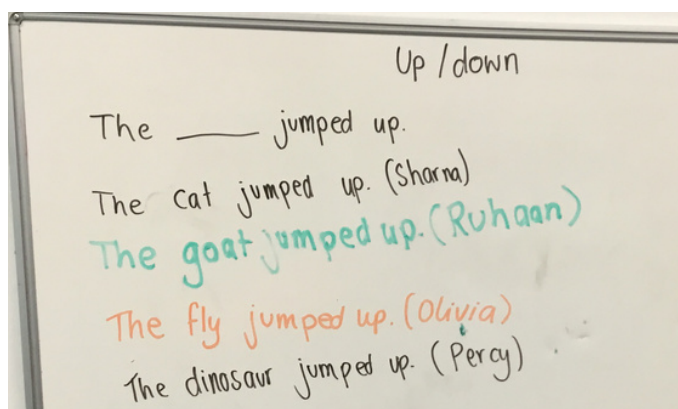 Up / down
The ___ jumped up.
The cat jumped up. (Sharna)
The goat jumped up. (Ruhaan)
The fly jumped up. (Olivia)
The dinosaur jumped up. (Percy)